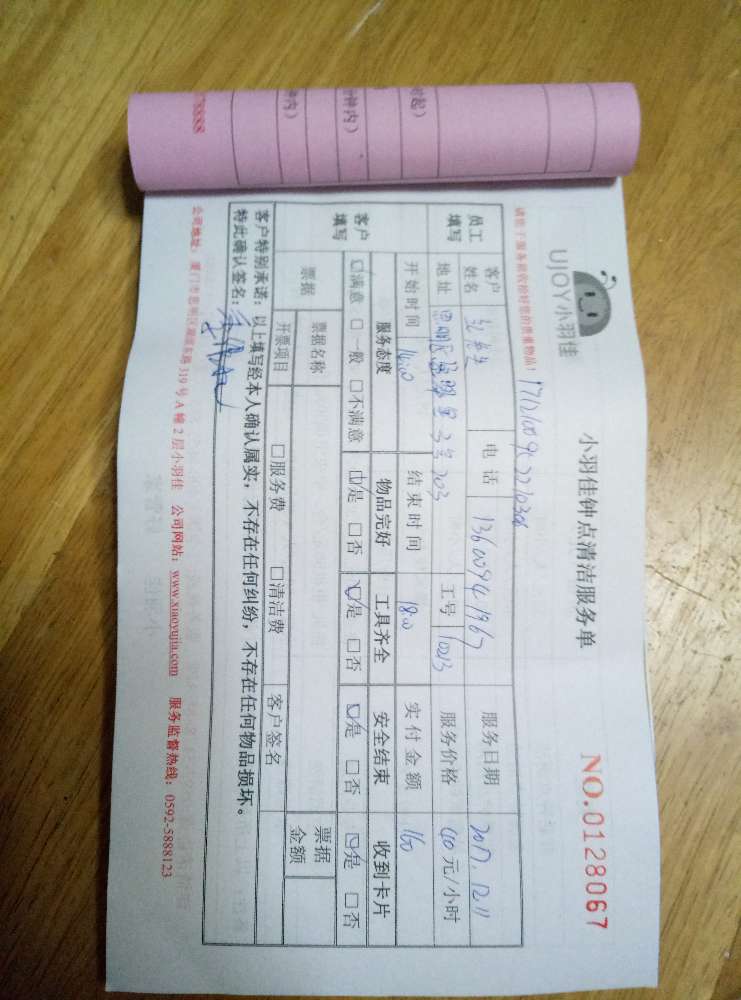 UJOY小羽佳
小羽佳钟点清洁服务单
NO.0128067
请您于服务前收拾好您的贵重物品！
员工填写
客户姓名 电话 13600941967 服务日期 2017.12.11
地址 工号 10213 服务价格 40元/小时
开始时间 14:00 结束时间 18:00 实付金额 160
客户填写
服务态度 物品完好 工具齐全 安全结束 收到卡片
☑满意 □一般 □不满意 ☑是 □否 ☑是 □否 ☑是 □否 ☑是 □否
票据 票据名称 票据金额
开票项目 □服务费 □清洁费 客户签名
客户特别承诺：以上填写经本人确认属实，不存在任何纠纷，不存在任何物品损坏。
特此确认签名：
公司地址：厦门市思明区湖滨东路319号A幢2层小羽佳 公司网站：www.xiaoyujia.com 服务监督热线：0592-5888123
时起）
钟内）
钟内）